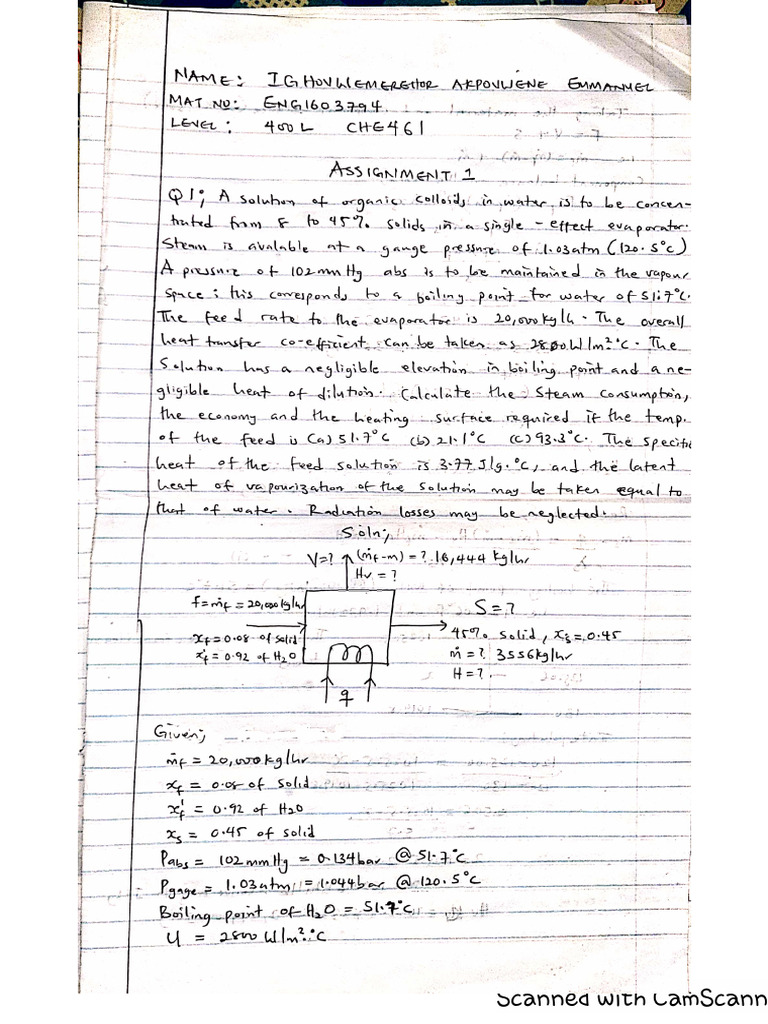 NAME: IGHOVWEMEREHOR AKPOVWENE EMMANUEL
MAT NO: ENG1603794
LEVEL: 400L CHE461
ASSIGNMENT 1
Q1; A solution of organic colloids in water is to be concen-
trated from 8 to 45% solids in a single-effect evaporator.
Steam is avalable at a gauge pressure of 1.03atm (120.5°C)
A pressure of 102mmHg abs is to be maintained in the vapour
space; this corresponds to a boiling point for water of 51.7°C.
The feed rate to the evaporator is 20,000kg/h. The overall
heat transfer co-efficient can be taken as 2800W/m²·°C. The
Solution has a negligible elevation in boiling point and a ne-
gligible heat of dilution. Calculate the Steam Consumption,
the economy and the heating surface required if the temp.
of the feed is (a) 51.7°C (b) 21.1°C (c) 93.3°C. The Specific
heat of the feed solution is 3.77J/g.°C, and the latent
heat of vapourization of the solution may be taken equal to
that of water. Radiation losses may be neglected.
Soln;
V=? (ṁf-m) = ? 16,444 kg/hr
Hv = ?
f=ṁf = 20,000kg/hr
S = ?
xf=0.08 of solid
45% solid, xs=0.45
xf'=0.92 of H2O
ṁ = ? 3556kg/hr
H = ?
q
Given;
ṁf = 20,000kg/hr
xf = 0.08 of solid
xf' = 0.92 of H2O
xs = 0.45 of solid
Pabs = 102mmHg = 0.134bar @ 51.7°C
Pgage = 1.03atm = 1.044bar @ 120.5°C
Boiling point of H2O = 51.7°C
U = 2800W/m²·°C
Scanned with CamScann